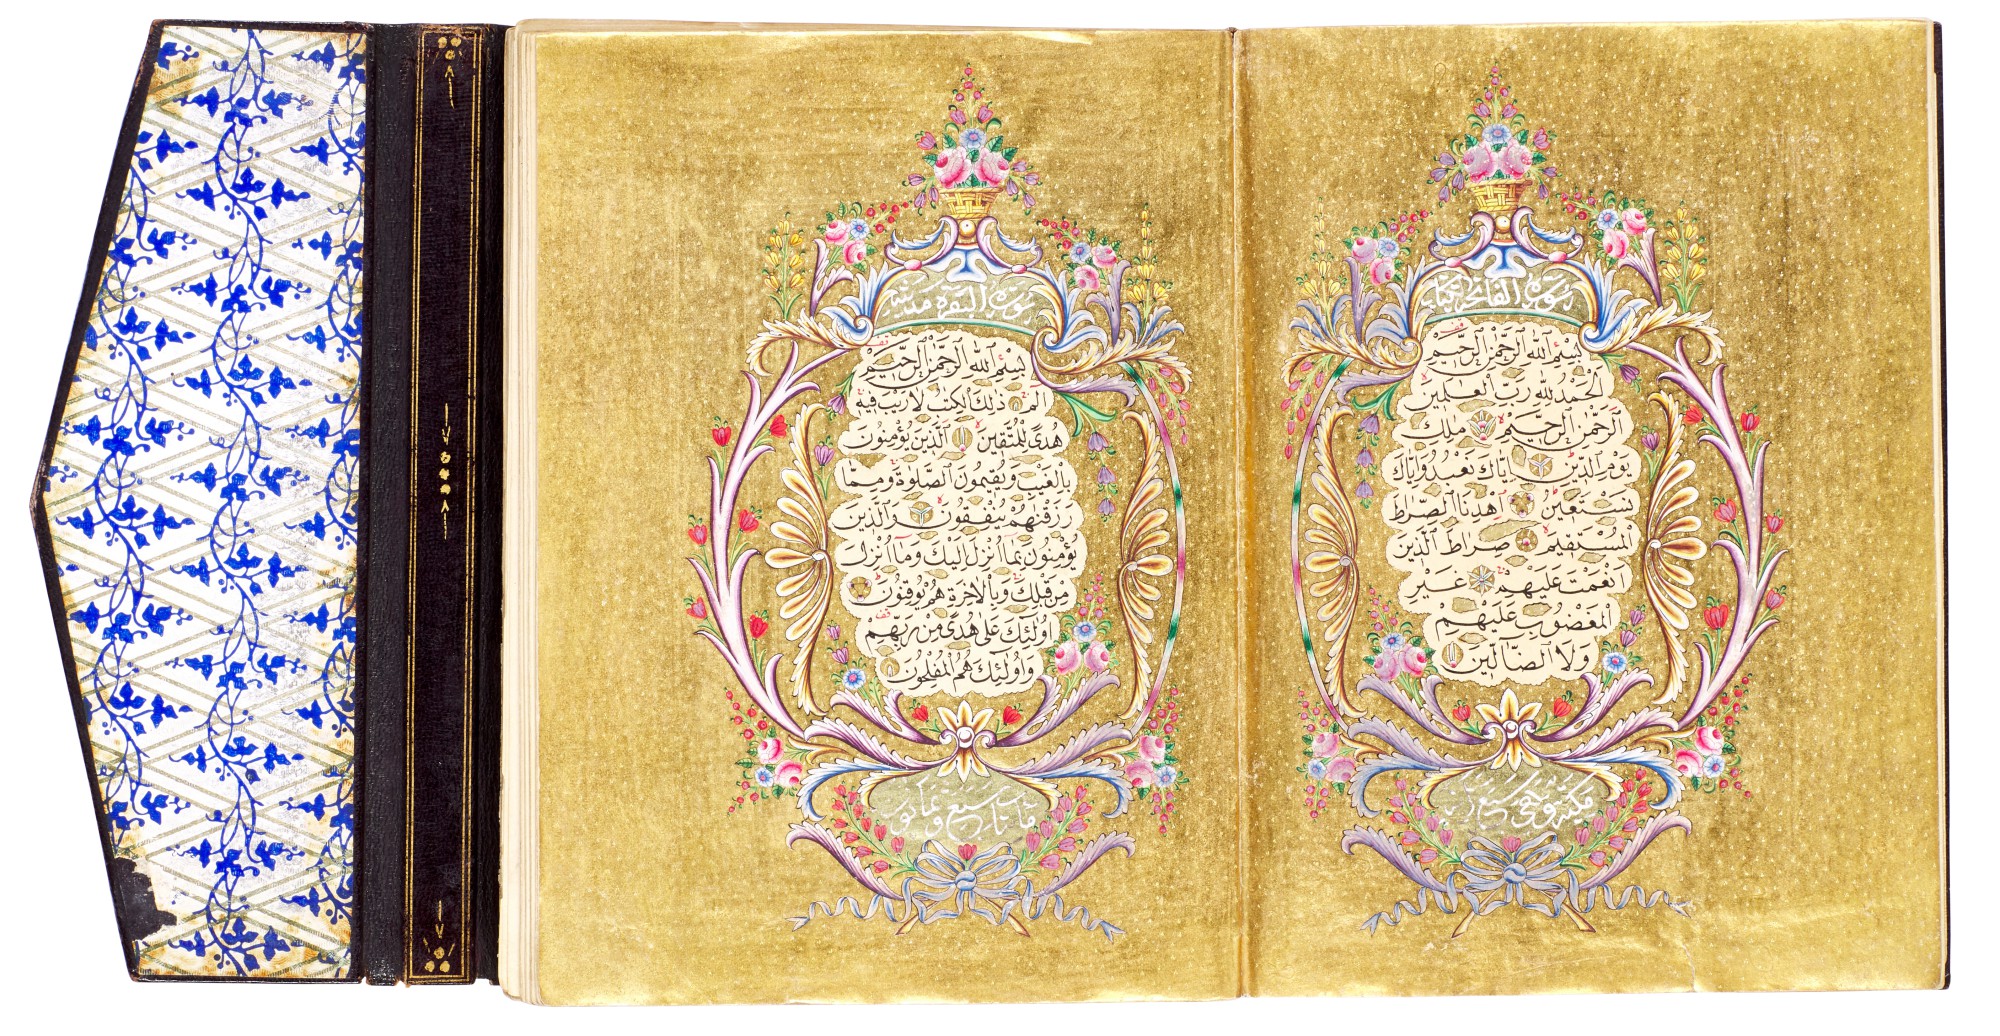 سورة الفاتحة
بِسْمِ اللهِ الرَّحْمٰنِ الرَّحِيمِ
اَلْحَمْدُ لِلّٰهِ رَبِّ الْعٰلَمِينَ
اَلرَّحْمٰنِ الرَّحِيمِ مٰلِكِ
يَوْمِ الدِّينِ اِيَّاكَ نَعْبُدُ وَاِيَّاكَ
نَسْتَعِينُ اِهْدِنَا الصِّرَاطَ
الْمُسْتَقِيمَ صِرَاطَ الَّذِينَ
اَنْعَمْتَ عَلَيْهِمْ غَيْرِ
الْمَغْضُوبِ عَلَيْهِمْ
وَلَا الضَّالِّينَ
مكية وهي سبع
سورة البقرة مدنية
بِسْمِ اللهِ الرَّحْمٰنِ الرَّحِيمِ
الم ذٰلِكَ الْكِتٰبُ لَا رَيْبَ فِيهِ
هُدًى لِلْمُتَّقِينَ اَلَّذِينَ يُؤْمِنُونَ
بِالْغَيْبِ وَيُقِيمُونَ الصَّلٰوةَ وَمِمَّا
رَزَقْنٰهُمْ يُنْفِقُونَ وَالَّذِينَ
يُؤْمِنُونَ بِمَا اُنْزِلَ اِلَيْكَ وَمَا اُنْزِلَ
مِنْ قَبْلِكَ وَبِالْاٰخِرَةِ هُمْ يُوقِنُونَ
اُولٰئِكَ عَلٰى هُدًى مِنْ رَبِّهِمْ
وَاُولٰئِكَ هُمُ الْمُفْلِحُونَ
مأتان سبع وثمانون